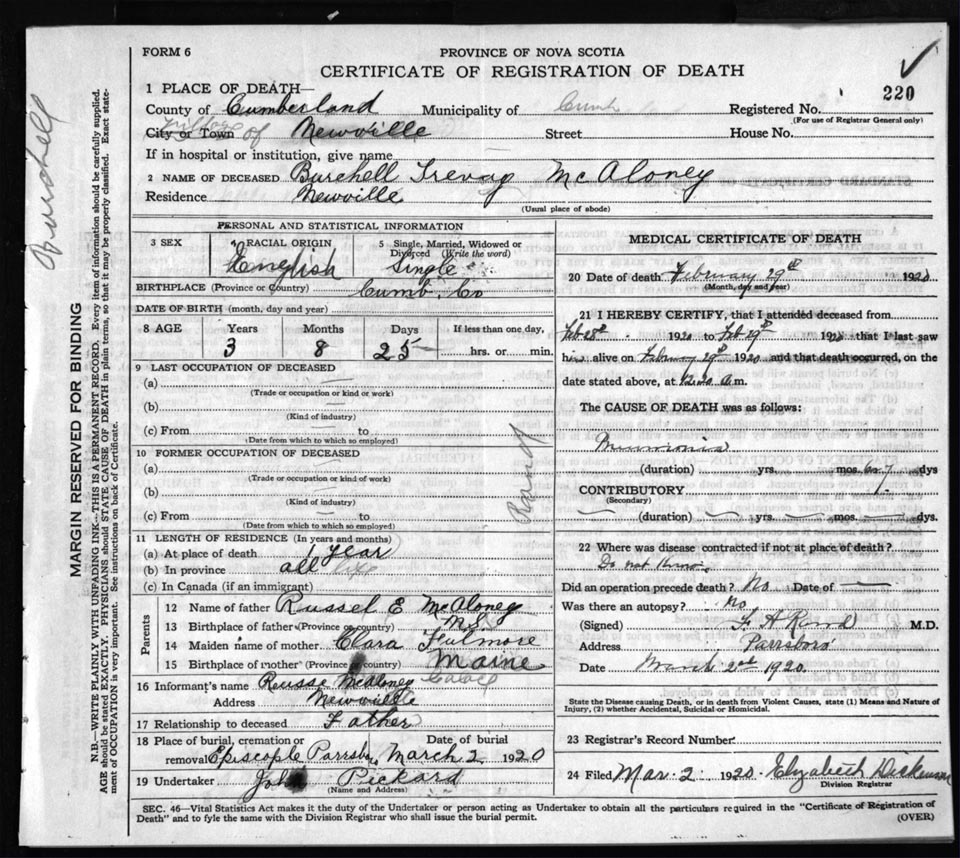 FORM 6
PROVINCE OF NOVA SCOTIA
CERTIFICATE OF REGISTRATION OF DEATH
220
1 PLACE OF DEATH—
County of Cumberland Municipality of Cumb Registered No.
(For use of Registrar General only)
City or Town of Newville Street House No.
If in hospital or institution, give name
2 NAME OF DECEASED Burchell Trevoy McAloney
Residence Newville
(Usual place of abode)
PERSONAL AND STATISTICAL INFORMATION
3 SEX 4 RACIAL ORIGIN 5 Single, Married, Widowed or Divorced (Write the word)
English Single
BIRTHPLACE (Province or Country) Cumb. Co
DATE OF BIRTH (month, day and year)
8 AGE Years Months Days If less than one day,
3 8 25 hrs. or min.
9 LAST OCCUPATION OF DECEASED
(a)
(Trade or occupation or kind or work)
(b)
(Kind of industry)
(c) From to
(Date from which to which so employed)
10 FORMER OCCUPATION OF DECEASED
(a)
(Trade or occupation or kind of work)
(b)
(Kind of industry)
(c) From to
(Date from which to which so employed)
11 LENGTH OF RESIDENCE (In years and months)
(a) At place of death 1 year
(b) In province all life
(c) In Canada (if an immigrant)
Parents
12 Name of father Russel E McAloney
13 Birthplace of father (Province or country) N.S.
14 Maiden name of mother Clara Fulmore
15 Birthplace of mother (Province or country) Maine
16 Informant's name Russe McAloney
Address Newville
17 Relationship to deceased Father
18 Place of burial, cremation or removal Date of burial
Episcople Parrsboro March 2 1920
19 Undertaker John Pickard
(Name and Address)
MEDICAL CERTIFICATE OF DEATH
20 Date of death February 29th 1920
(Month, day and year)
21 I HEREBY CERTIFY, that I attended deceased from
Feb 28th 1920 to Feb 29th 1920 that I last saw
him alive on February 29th 1920 and that death occurred, on the
date stated above, at a.m.
The CAUSE OF DEATH was as follows:
Pneumonia
(duration) yrs. mos. 6 or 7 dys
CONTRIBUTORY
(Secondary)
(duration) yrs. mos. dys.
22 Where was disease contracted if not at place of death?
Do not Know
Did an operation precede death? No Date of
Was there an autopsy? No
(Signed) F A Rand M.D.
Address Parrsboro
Date March 2nd 1920
State the Disease causing Death, or in death from Violent Causes, state (1) Means and Nature of
Injury, (2) whether Accidental, Suicidal or Homicidal.
23 Registrar's Record Number
24 Filed Mar. 2 1920 Elizabeth Dickinson
Division Registrar
SEC. 46—Vital Statistics Act makes it the duty of the Undertaker or person acting as Undertaker to obtain all the particulars required in the "Certificate of Registration of
Death" and to fyle the same with the Division Registrar who shall issue the burial permit. (OVER)
Rand
MARGIN RESERVED FOR BINDING
N.B.—WRITE PLAINLY WITH UNFADING INK—THIS IS A PERMANENT RECORD. Every item of information should be carefully supplied.
AGE should be stated EXACTLY. PHYSICIANS should STATE CAUSE OF DEATH in plain terms, so that it may be properly classified. Exact state-
ment of OCCUPATION is very important. See instructions on back of Certificate.